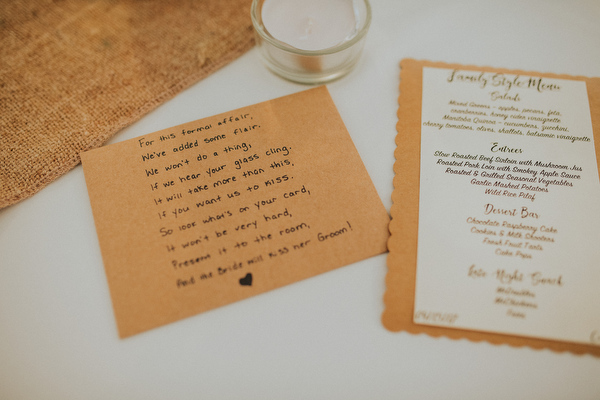 For this formal affair,
We've added some flair.
We won't do a thing,
if we hear your glass cling.
It will take more than this,
if you want us to kiss.
So look what's on your card,
it won't be very hard,
Present it to the room,
And the Bride will kiss her Groom!
Family Style Menu
Salads
Mixed Greens - apples, pecans, feta,
cranberries, honey cider vinaigrette
Manitoba Quinoa - cucumbers, zucchini,
cherry tomatoes, olives, shallots, balsamic vinaigrette
Entrees
Slow Roasted Beef Sirloin with Mushroom Jus
Roasted Pork Loin with Smokey Apple Sauce
Roasted & Grilled Seasonal Vegetables
Garlic Mashed Potatoes
Wild Rice Pilaf
Dessert Bar
Chocolate Raspberry Cake
Cookies & Milk Shooters
Fresh Fruit Tarts
Cake Pops
Late Night Snack